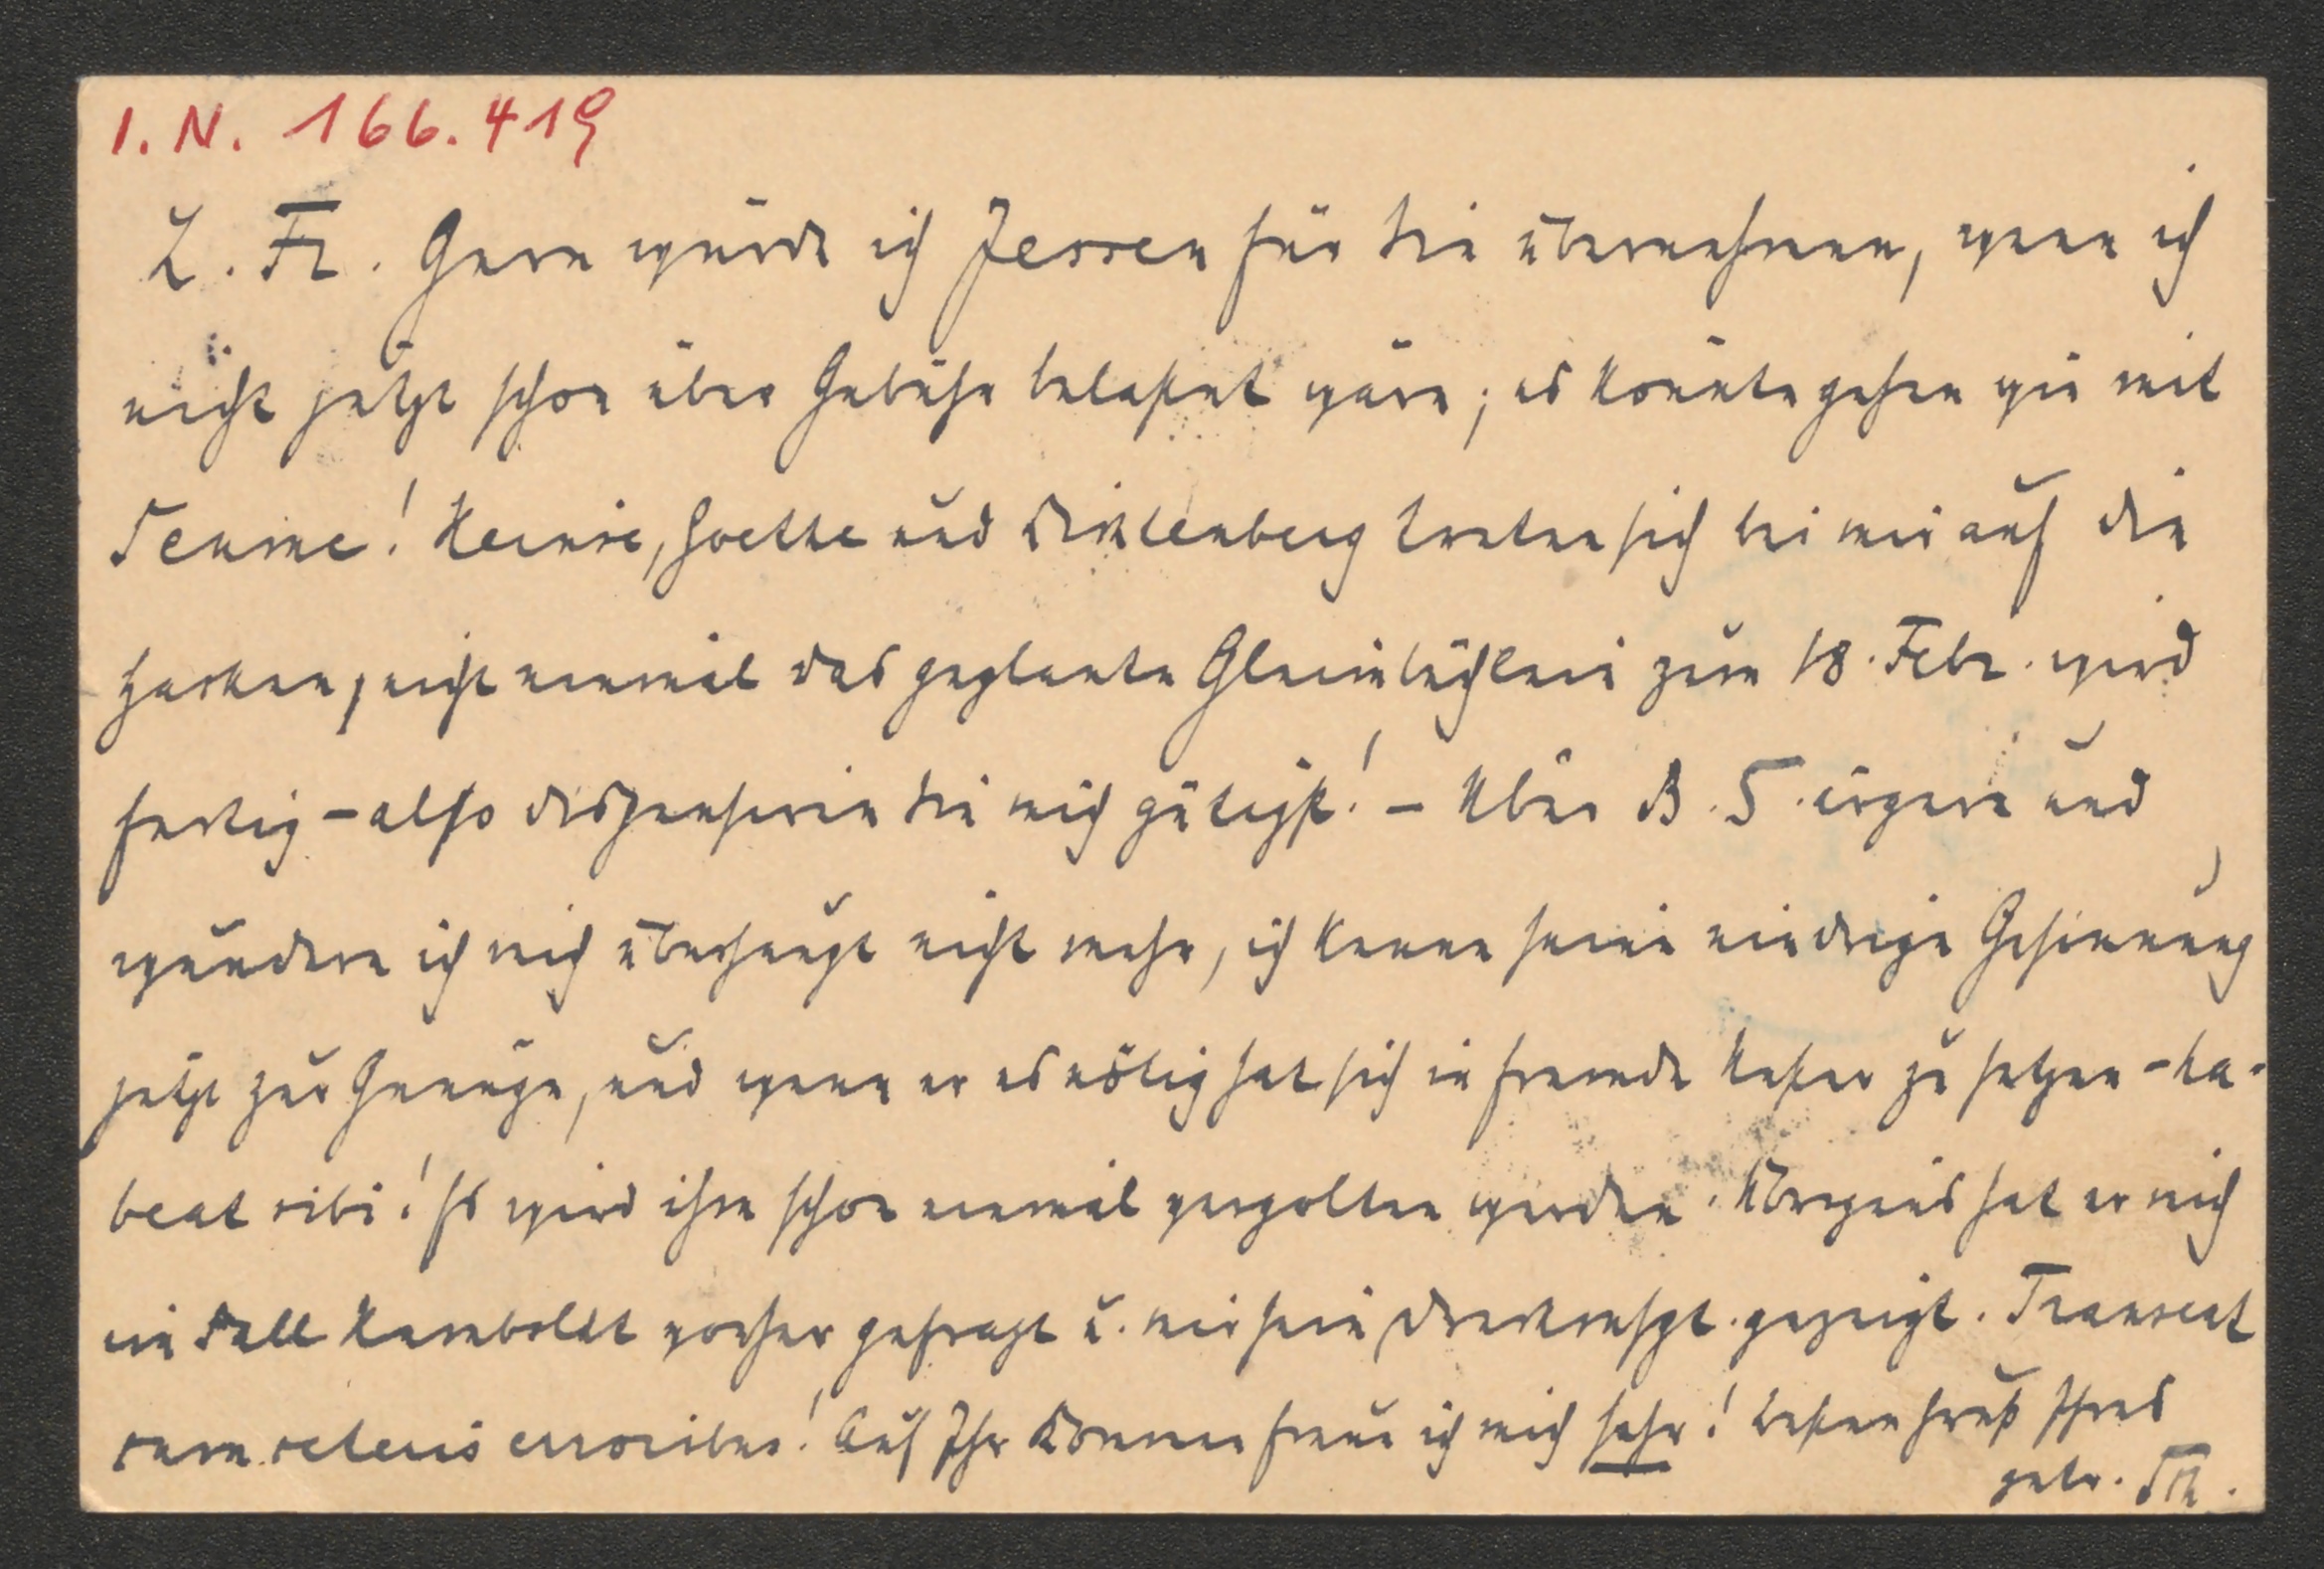 I. N. 166.419
L. Fr. Gern würde ich Jessen für Sie übernehmen, wenn ich
nicht jetzt schon über Gebühr belastet wäre; es könnte gehen wie mit
Temme! Heinse, Goethe und Lichtenberg treten sich bei mir auf die
Hacken, nicht einmal das geplante Gleimbüchlein zum 18. Febr. wird
fertig – also dispensieren Sie mich gütigst! – Über B. S. ärgere und
wundere ich mich überhaupt nicht mehr, ich kenne seine niedrige Gesinnung
jetzt zur Genüge, und wenn er es nötig hat sich in fremde Nester zu setzen – ha-
beat sibi! Es wird ihm schon einmal vergolten werden. Übrigens hat er mich
im Fall Humboldt vorher gefragt u. mir sein gezeigt. Transeat
cum ceteris erroribus! Auf Ihr Kommen freue ich mich sehr! Besten Gruß Ihres
getr.